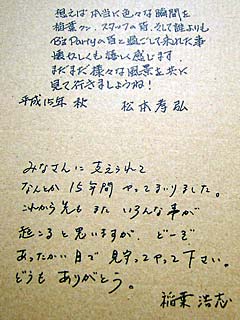 想えば本当に色々な瞬間を
稲葉クン、スタッフの皆、そして誰よりも
B'z Partyの皆と過ごして来れた事
懐かしくも嬉しく感じます。
まだまだ様々な風景を共に
見て行きましょうね!
平成15年 秋 松本孝弘
みなさんに支えられて
なんとか 15年間 やってまいりました。
これから先も また いろんな事が
起こると思いますが、どーぞ
あったかい目で 見守ってやって下さい。
どうも ありがとう。
稲葉 浩志